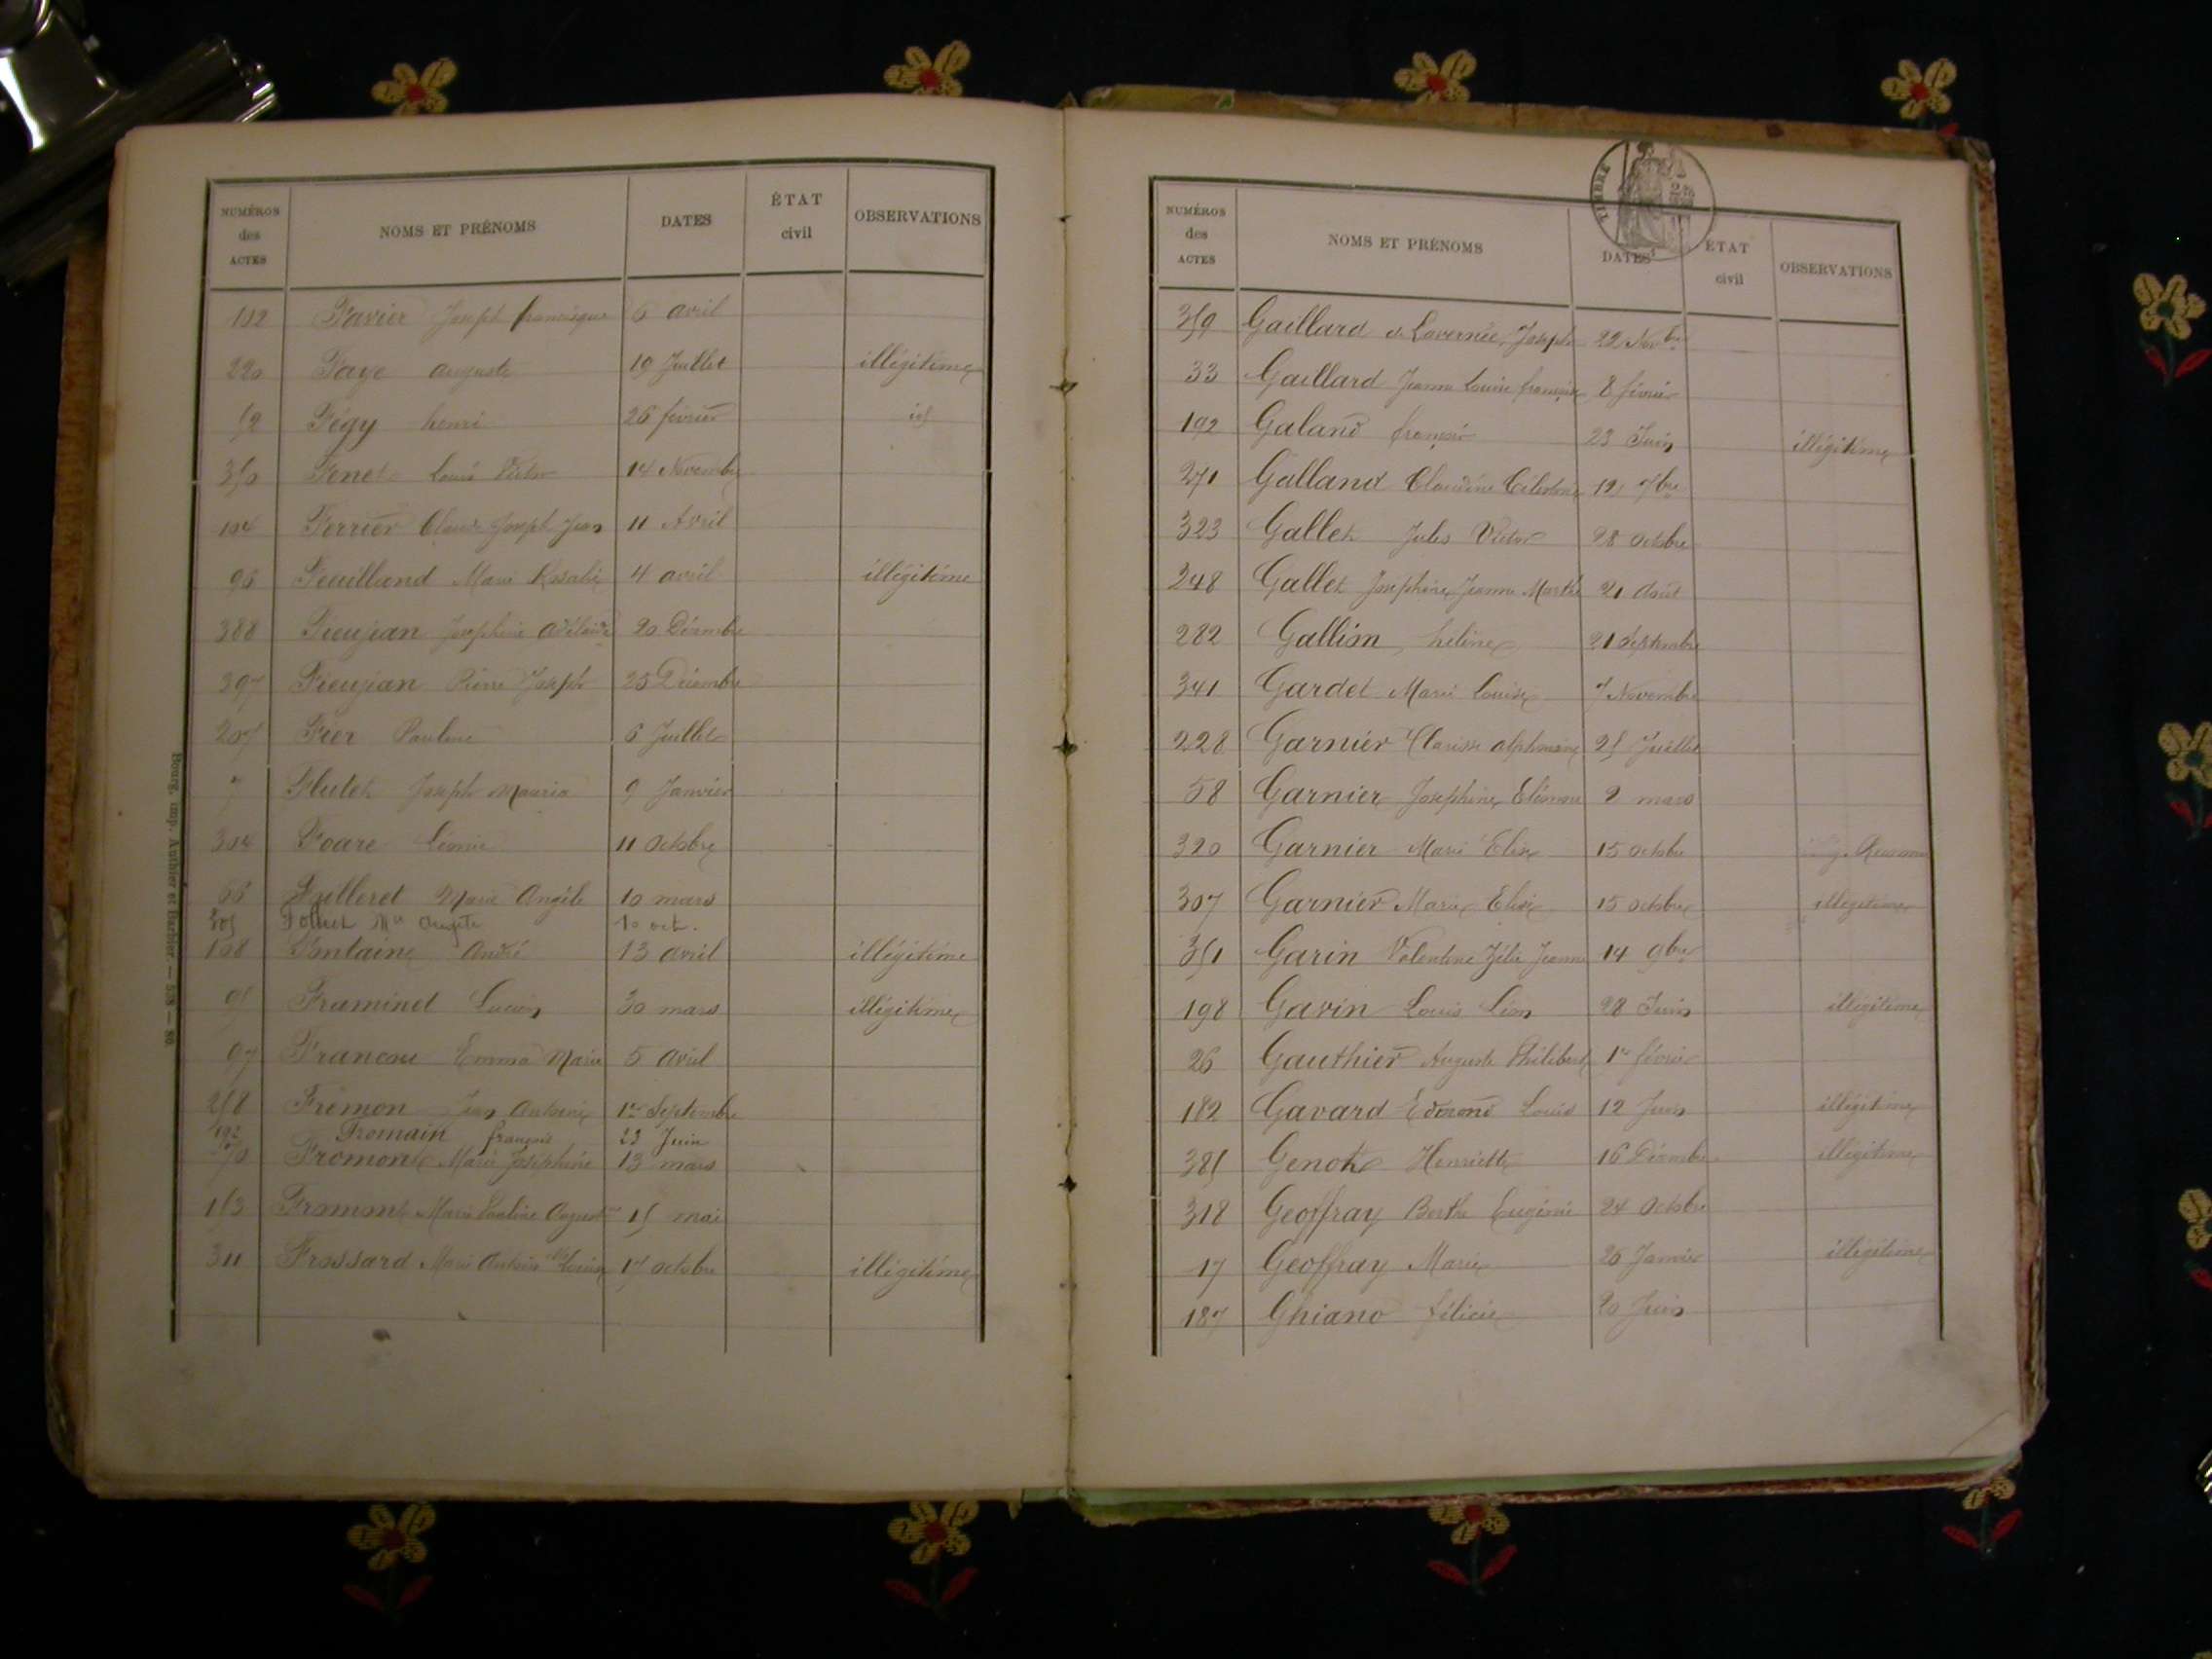 NUMÉROS des ACTES NOMS ET PRÉNOMS DATES ÉTAT civil OBSERVATIONS
102 Favier Joseph francisque 6 avril
220 Faye auguste 19 Juillet illégitime
52 Fégy henri 26 février id
350 Fenet Louis Victor 14 Novembre
104 Ferrier Claude Joseph Jean 11 Avril
96 Feuilland Marie Rosalie 4 avril illégitime
388 Fieujean Josephine Adélaide 20 Décembre
397 Fieujean Pierre Joseph 25 Décembre
207 Fier Pauline 6 Juillet
7 Flutet Joseph Maurice 9 Janvier
304 Foare Léonie 11 Octobre
66 Marie Angèle 10 mars
305 Follet Mie 10 oct.
108 Fontaine André 13 avril illégitime
95 Framinet Lucien 30 mars illégitime
97 Francou Emma Marie 5 avril
258 Frémon Jean Antoine 1er Septembre
192 Fromain françois 23 Juin
70 Fromont Marie Joséphine 13 mars
153 Fromont Marie Pauline 15 mai
311 Frossard Marie Louise 17 octobre illégitime
Bourg, imp. Authier et Barbier. — 538 — 86
TIMBRE
NUMÉROS des ACTES NOMS ET PRÉNOMS DATES ÉTAT civil OBSERVATIONS
359 Gaillard de Lavernée, Joseph 22 Novbre
33 Gaillard Jeanne Louise françoise 8 février
192 Galand françois 23 Juin illégitime
271 Galland Claudine Célestine 12 7bre
323 Gallet Jules Victor 28 Octobre
248 Gallet Joséphine Jeanne Marthe 21 Août
282 Gallion hélène 21 Septembre
341 Gardet Marie Louise 7 Novembre
228 Garnier Clarisse alphonsine 25 Juillet
58 Garnier Josephine Eléonore 2 mars
320 Garnier Marie Elise 15 octobre
307 Garnier Marie Elise 15 octobre illégitime
351 Garin Valentine Zélie Jeanne 14 9bre
198 Gavin Louis Léon 28 Juin illégitime
26 Gauthier Auguste Philibert 1er février
182 Gavard Edmond Louis 12 Juin illégitime
385 Genot Henriette 16 Décembre illégitime
318 Geoffray Berthe Eugénie 24 Octobre
17 Geoffray Marie 26 Janvier illégitime
187 Ghiano félicie 20 Juin